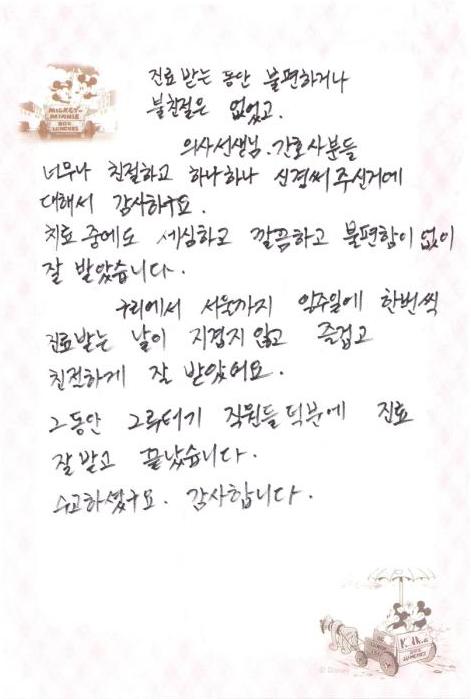 진료 받는 동안 불편하거나
불친절은 없었고.
MICKEY AND
MINNIE
BOX
LUNCHES
의사선생님. 간호사분들
너무나 친절하고 하나하나 신경써 주신거에
대해서 감사하구요.
치료 중에도 세심하고 깔끔하고 불편함이 없이
잘 받았습니다.
구리에서 서울까지 일주일에 한번씩
진료받는 날이 지겹지 않고 즐겁고
친절하게 잘 받았어요.
그동안 그루터기 직원들 덕분에 진료
잘 받고 끝났습니다.
수고하셨구요. 감사합니다.
BOX
LUNCHES
© Disney